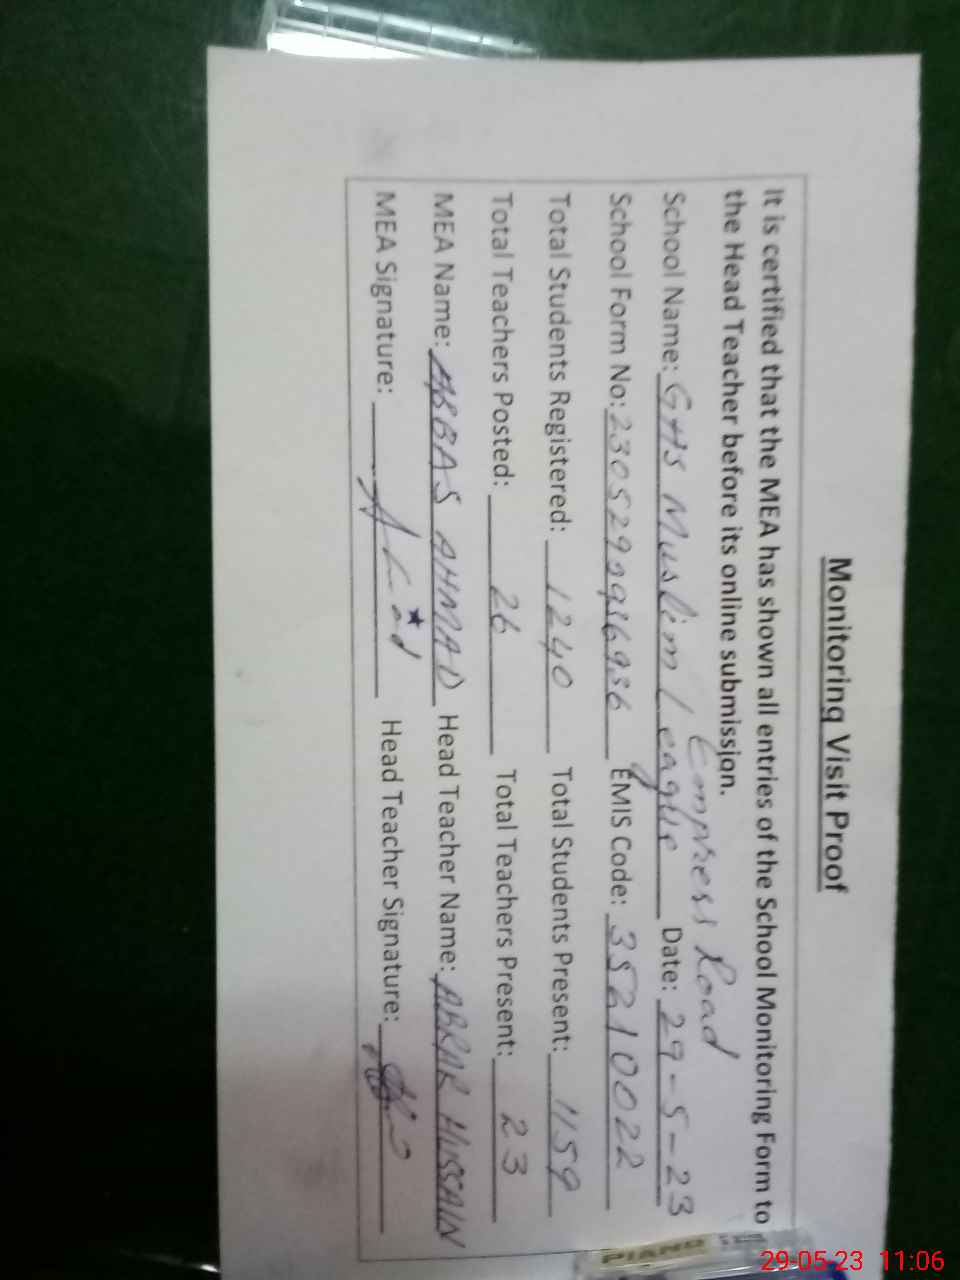 Monitoring Visit Proof
It is certified that the MEA has shown all entries of the School Monitoring Form to
the Head Teacher before its online submission.
Empress Road
School Name: GHS Muslim League Date: 29-5-23
School Form No: EMIS Code: 35210022
Total Students Registered: 1240 Total Students Present: 1159
Total Teachers Posted: 26 Total Teachers Present: 23
MEA Name: ABBAS AHMAD Head Teacher Name: ABRAR HUSSAIN
MEA Signature: Head Teacher Signature:
PIANO
29-05-23 11:06